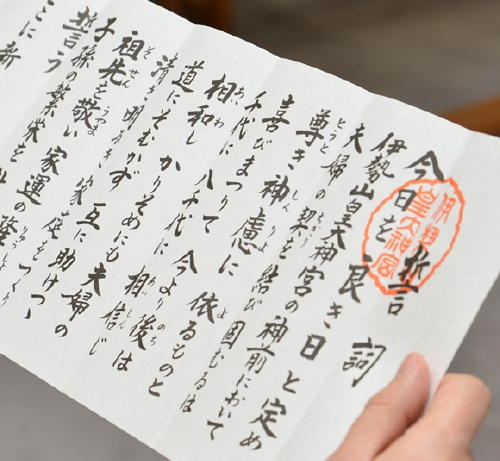 誓詞
今日を良き日と定め
伊勢山皇大神宮の神前において
夫婦の契を結び固むるは
尊き神慮に依るものと
喜びまつりて今より後は
千代に八千代に相信じ
相和し かりそめにも夫婦の
道にそむかず 互に助けつゝ
清き明るき家庭をつくり
祖先を敬い家運の隆
子孫の繁栄を
誓う
こに新
伊勢山
皇大神宮